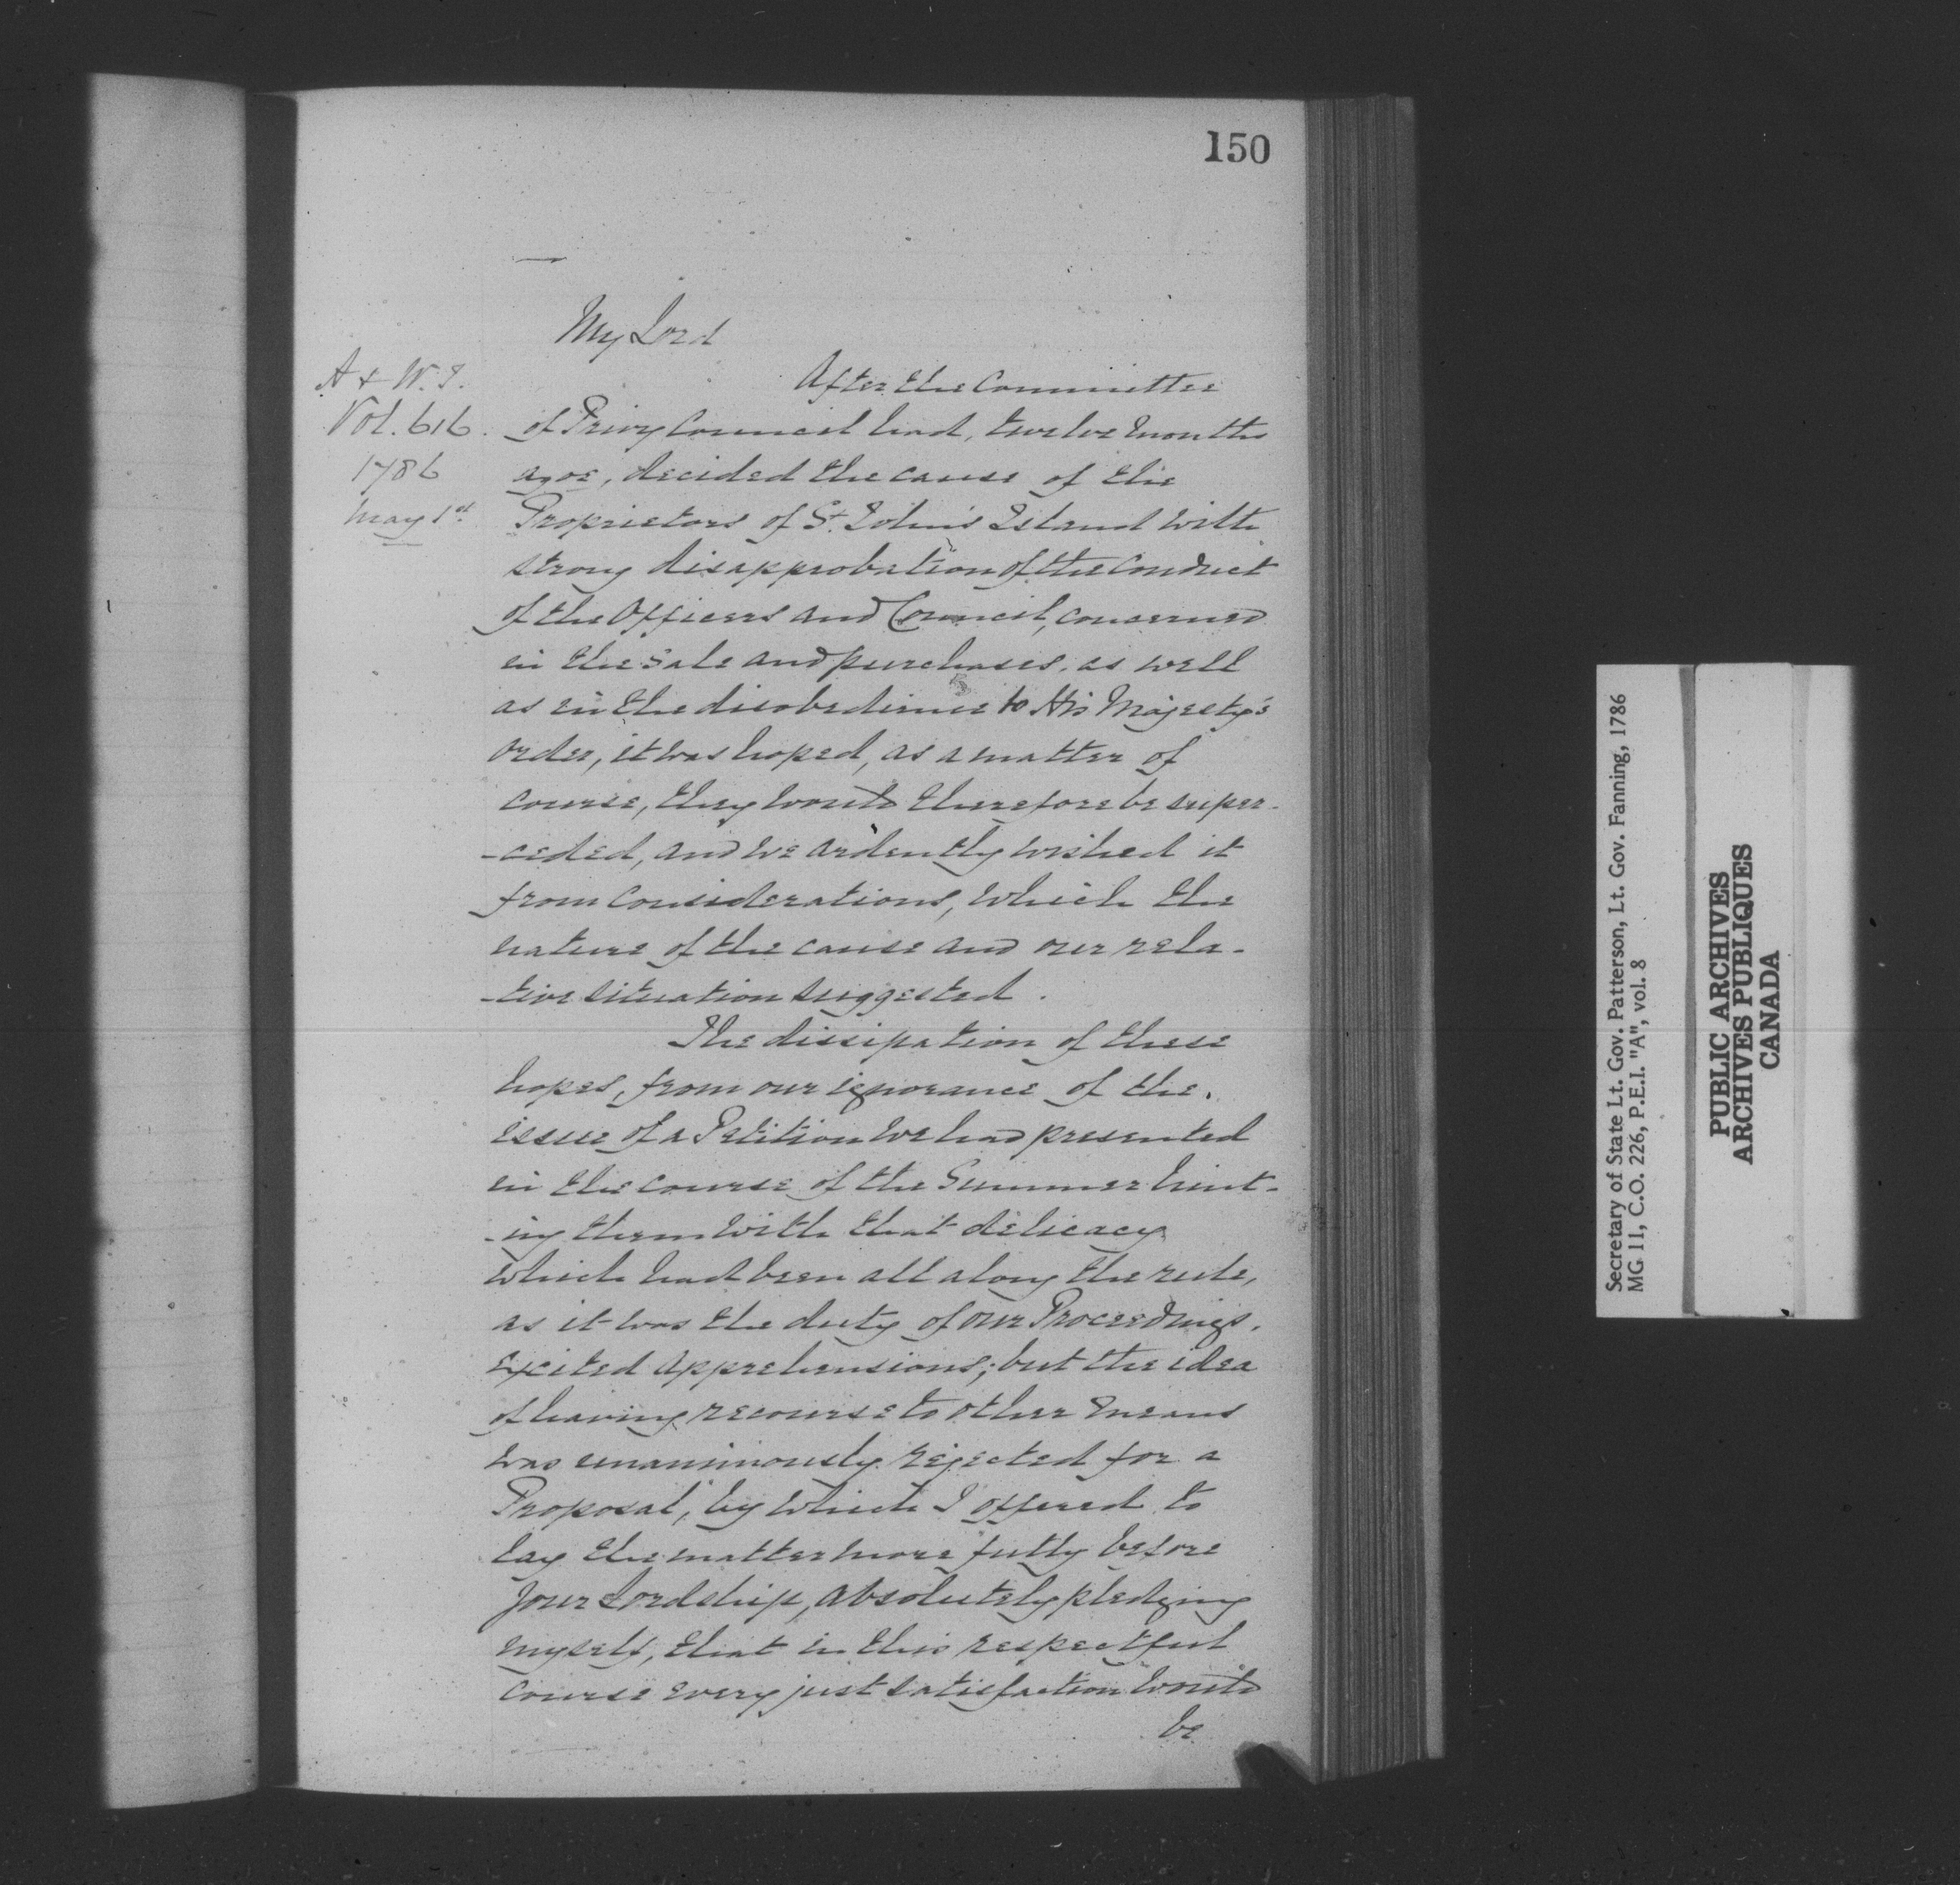 150
My Lord
A & W.I.
Vol. 616.
1786
May 1st
After the Committee
of Privy Council had, twelve Months
agoe, decided the cause of the
Proprietors of St. John's Island with
strong disapprobation of the Conduct
of the Officers and Council, concerned
in the Sale and purchases, as well
as in the disobedience to His Majesty's
Order, it was hoped, as a matter of
course, they would therefore be super-
-ceded, and we ardently wished it
from Considerations, which the
nature of the cause and our rela-
-tive situation suggested.
The dissipation of these
hopes, from our ignorance of the
issue of a Petition we had presented
in the course of the Summer hint-
-ing them with that delicacy
which had been all along the rule,
as it was the duty of our Proceedings,
excited apprehensions; but the idea
of having recourse to other Means
was unanimously rejected for a
Proposal, by which I offered to
lay the matter more fully before
Your Lordship, absolutely pledging
myself, that in this respectful
course every just satisfaction would
be
Secretary of State Lt. Gov. Patterson, Lt. Gov. Fanning, 1786
MG 11, C.O. 226, P.E.I. "A", vol. 8
PUBLIC ARCHIVES
ARCHIVES PUBLIQUES
CANADA